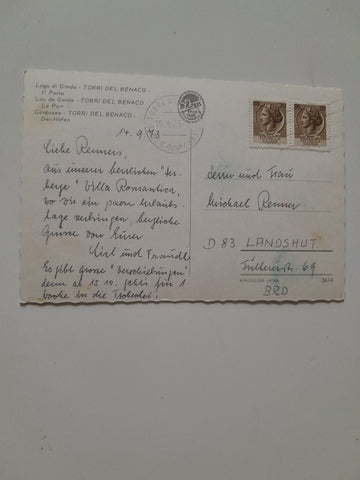 Lago di Garda - TORRI DEL BENACO -
Il Porto
Lac de Garda - TORRI DEL BENACO
Le Port
Gardasee - TORRI DEL BENACO -
Der Hafen
14.9.73
Liebe Renners
Aus unserer herrlichen "Her-
berge" Villa Romantica,
wo wir ein paar Urlaubs-
tage verbringen, herzliche
Grüsse von Eurer
und Traudl
Es gibt grosse "Verschiebungen"
denn ab 15.10. geht's für 1
Woche in die
Herrn und Frau
Michael Renner
D 83 LANDSHUT
69
BRD
361A